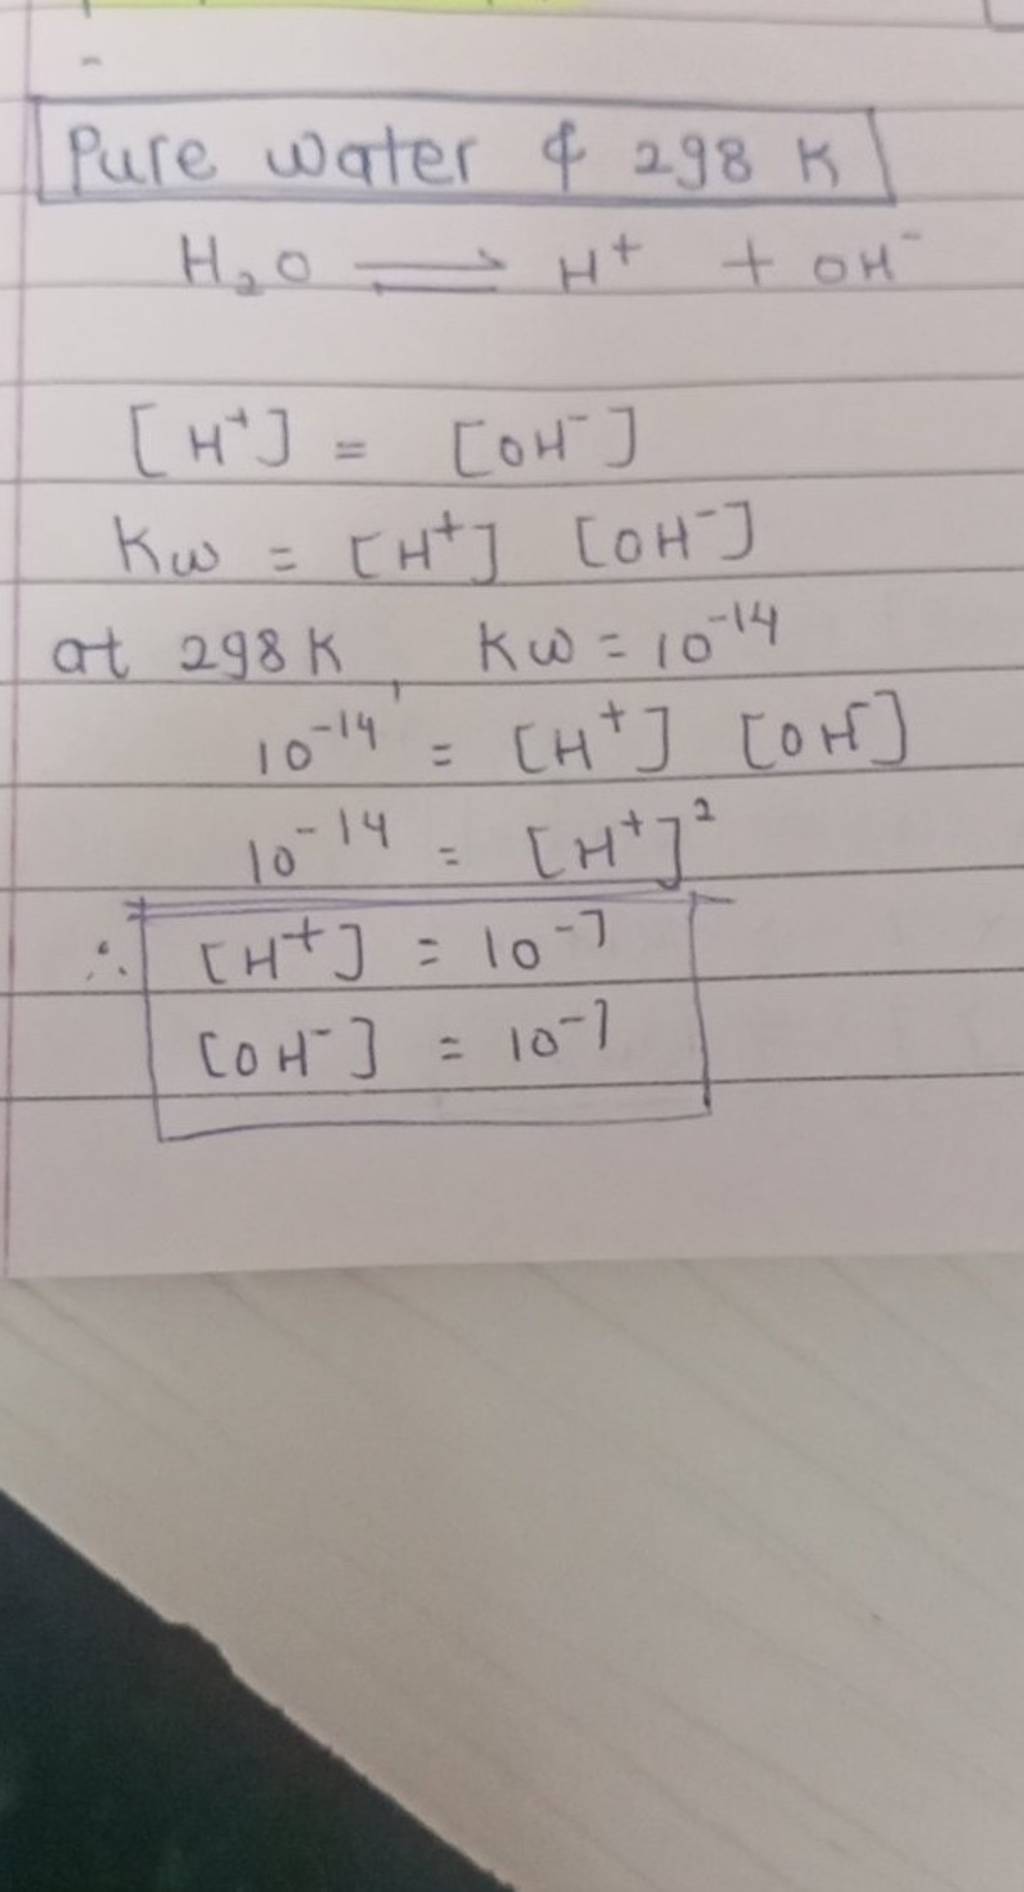 Pure water & 298 K
H₂O ⇌ H⁺ + OH⁻
[H⁺] = [OH⁻]
Kw = [H⁺] [OH⁻]
at 298K, Kw = 10⁻¹⁴
10⁻¹⁴ = [H⁺] [OH⁻]
10⁻¹⁴ = [H⁺]²
∴ [H⁺] = 10⁻⁷
[OH⁻] = 10⁻⁷